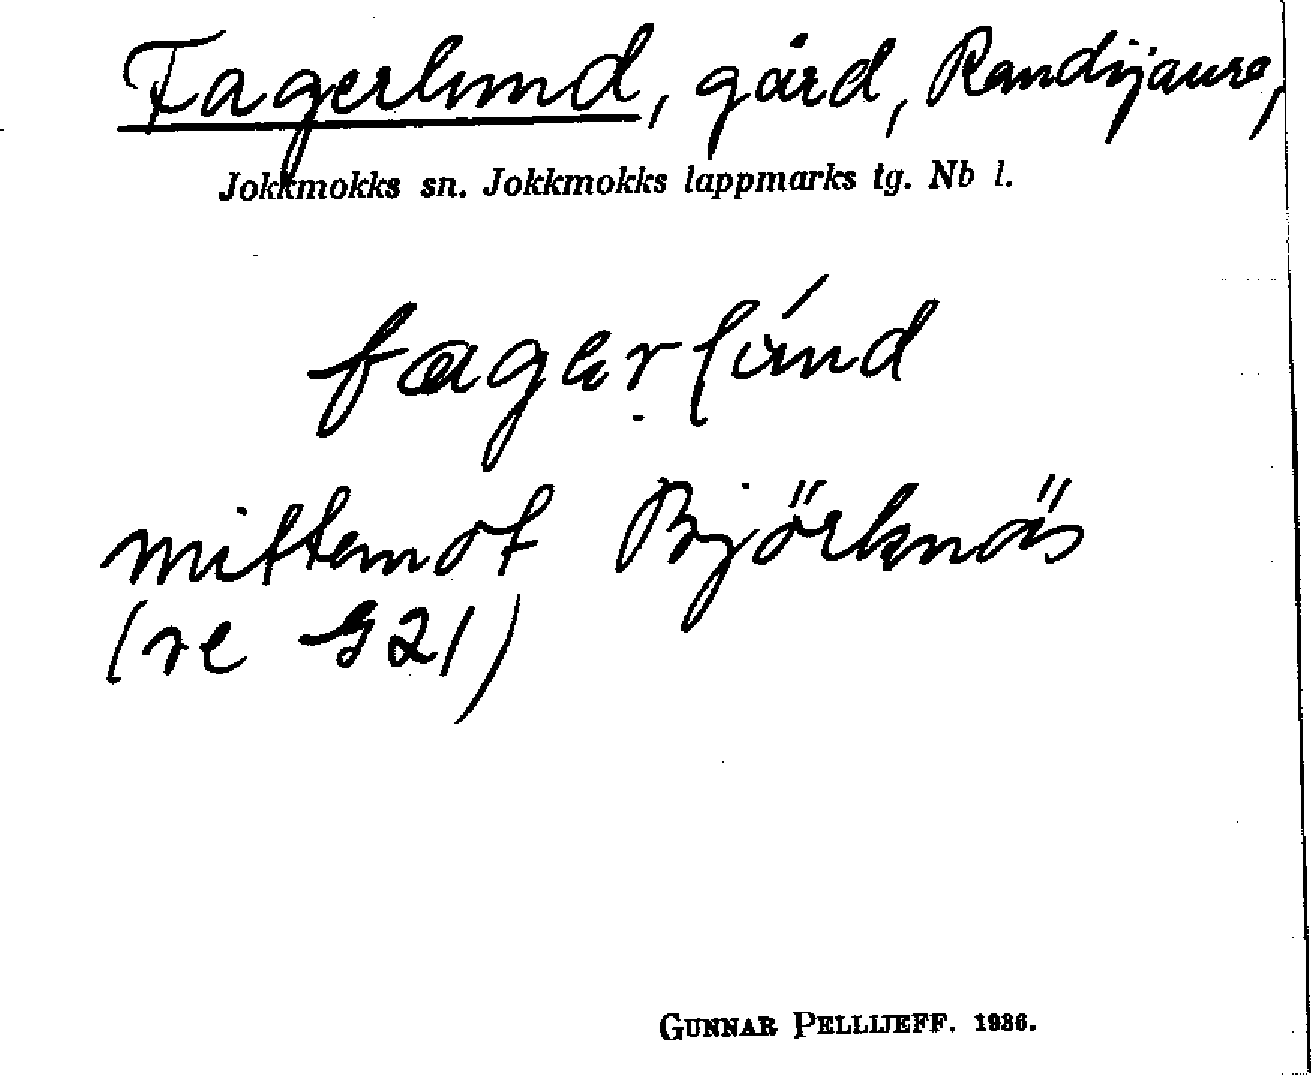 Fagerlund, gård, Randijaure,
Jokkmokks sn. Jokkmokks lappmarks tg. Nb l.
fagerlúnd
mittemot Björknäs
(re G21)
GUNNAR PELLIJEFF. 1986.